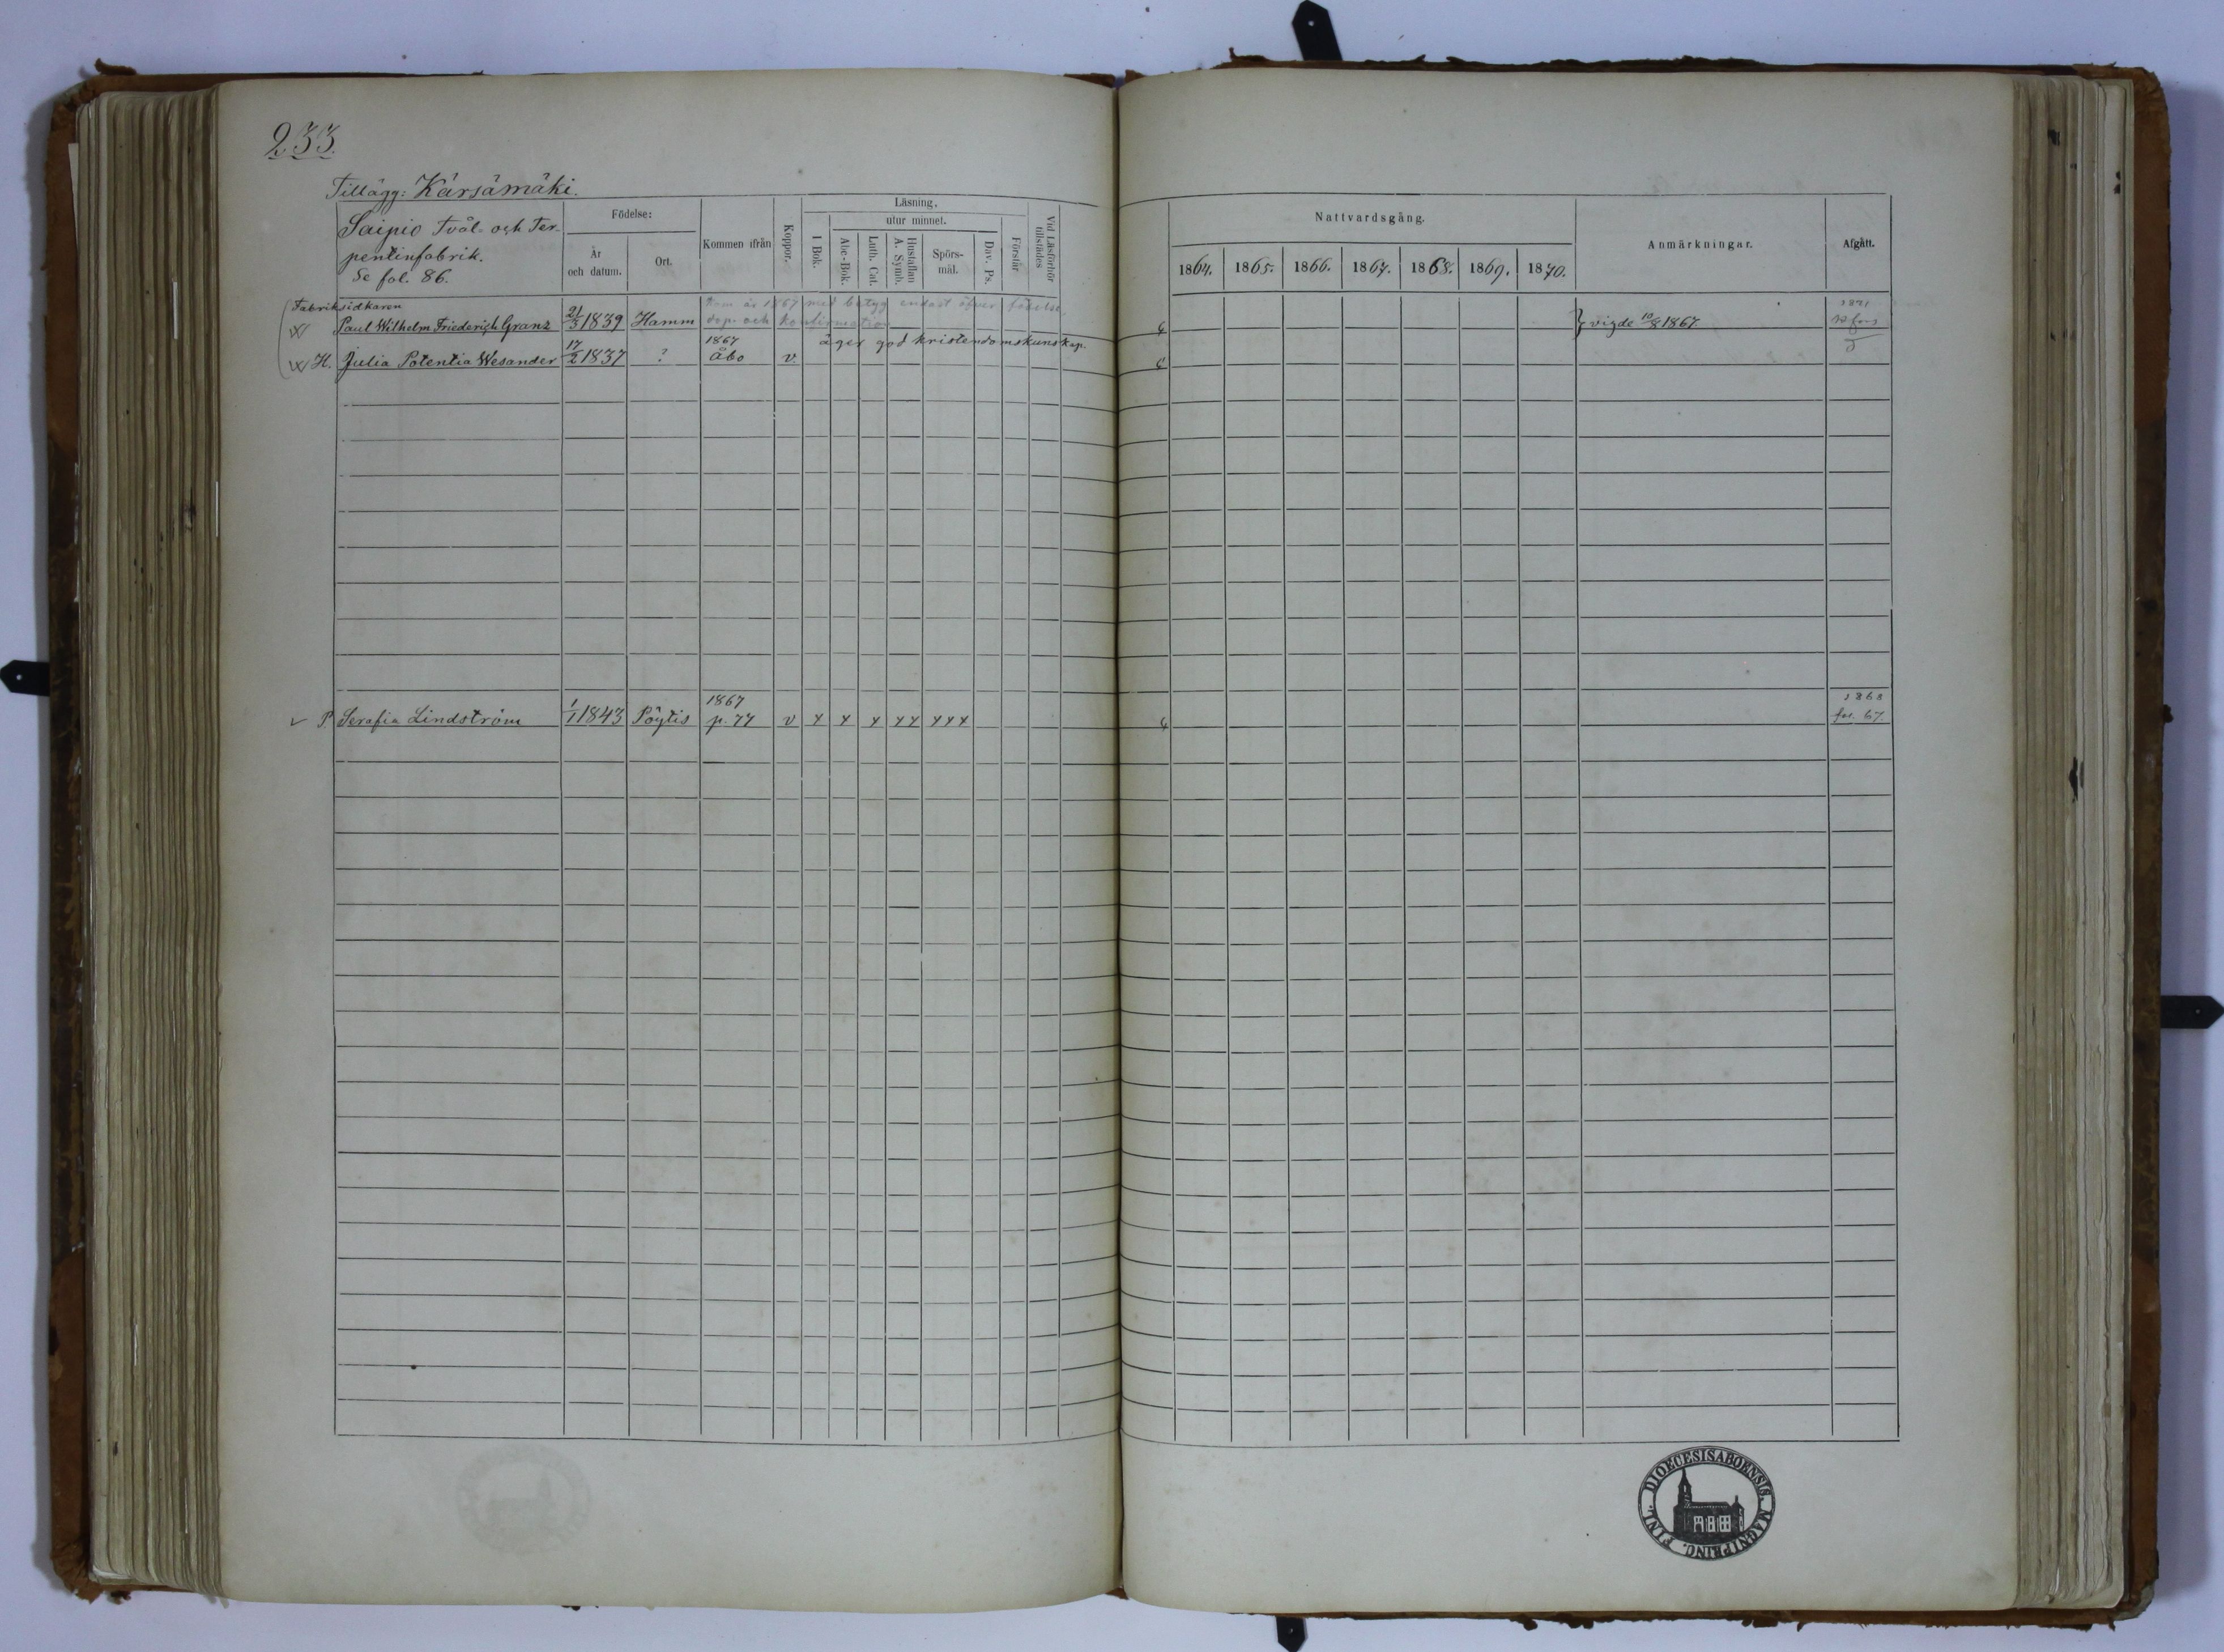 233.
Tillägg: Kärsämäki.
Saipio Tvål- och Ter-
pentinfabrik.
Se fol. 86.
Födelse:
År
och datum.
Ort.
Kommen ifrån
Koppor.
Läsning.
utur minnet.
I Bok.
Abc-Bok.
Luth. Cat.
Hustaflan
A. Symb.
Spörs-
mål.
Dav. Ps.
Förstår
Vid Läsförhör
tillstädes
Nattvardsgång.
1864. 1865. 1866. 1867. 1868. 1869. 1870.
Anmärkningar.
Afgått.
Fabriksidkaren
Paul Wilhelm Friederich Granz 21/3 1839 Hamm
kom år 1867 med betyg endast öfver födelse
dop och konfirmation
} vigde 10/8 1867.
1871
H. Julia Potentia Wesander 17/2 1837 ? 1867 Åbo v.
äger god kristendomskunskap.
P. Serafia Lindström 1/1 1843 Pöytis 1867 p. 77 v x x x xx xxx
1868
fol. 67.
FINL. DIOECESISABOENSIS. MAGNIPRINC.